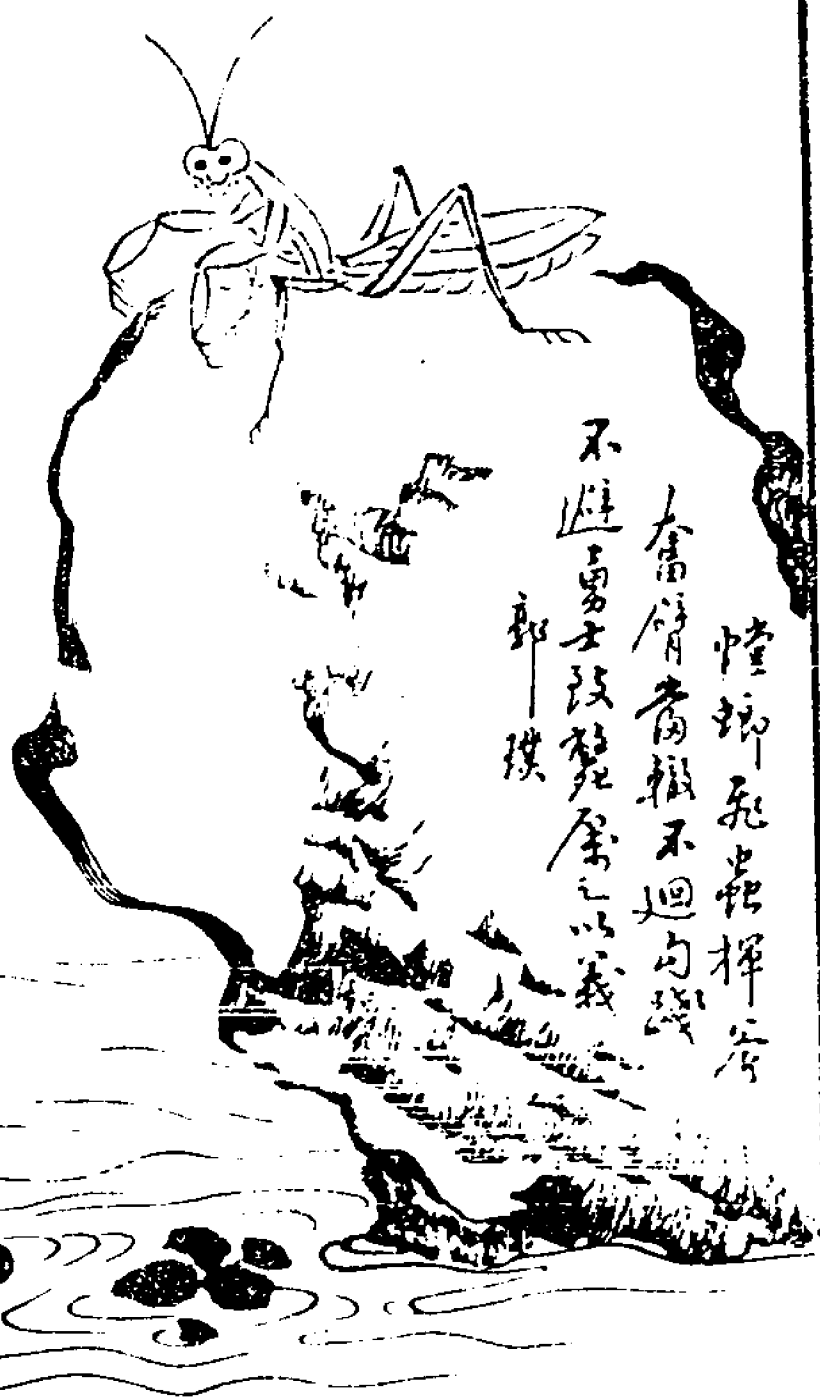 螳螂飛蟲揮斧
奮臂當轍不迴勾踐
不避勇士致斃厲之以義
郭璞